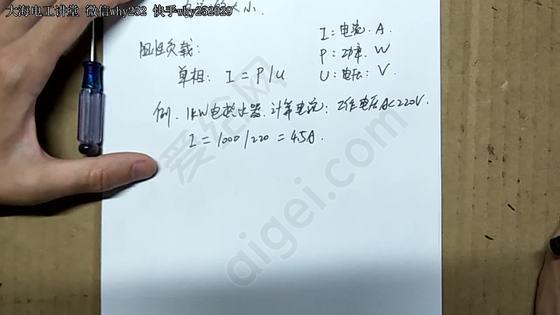 大海电工讲堂 微信why232 快手why232029
的大小.
I：电流. A.
阻性负载：
P：功率. W
单相：I = P/U
U：电压：V.
例. 1KW电热水器. 计算电流：工作电压AC220V.
I = 1000/220 = 4.5A.
爱给网
aigei.com